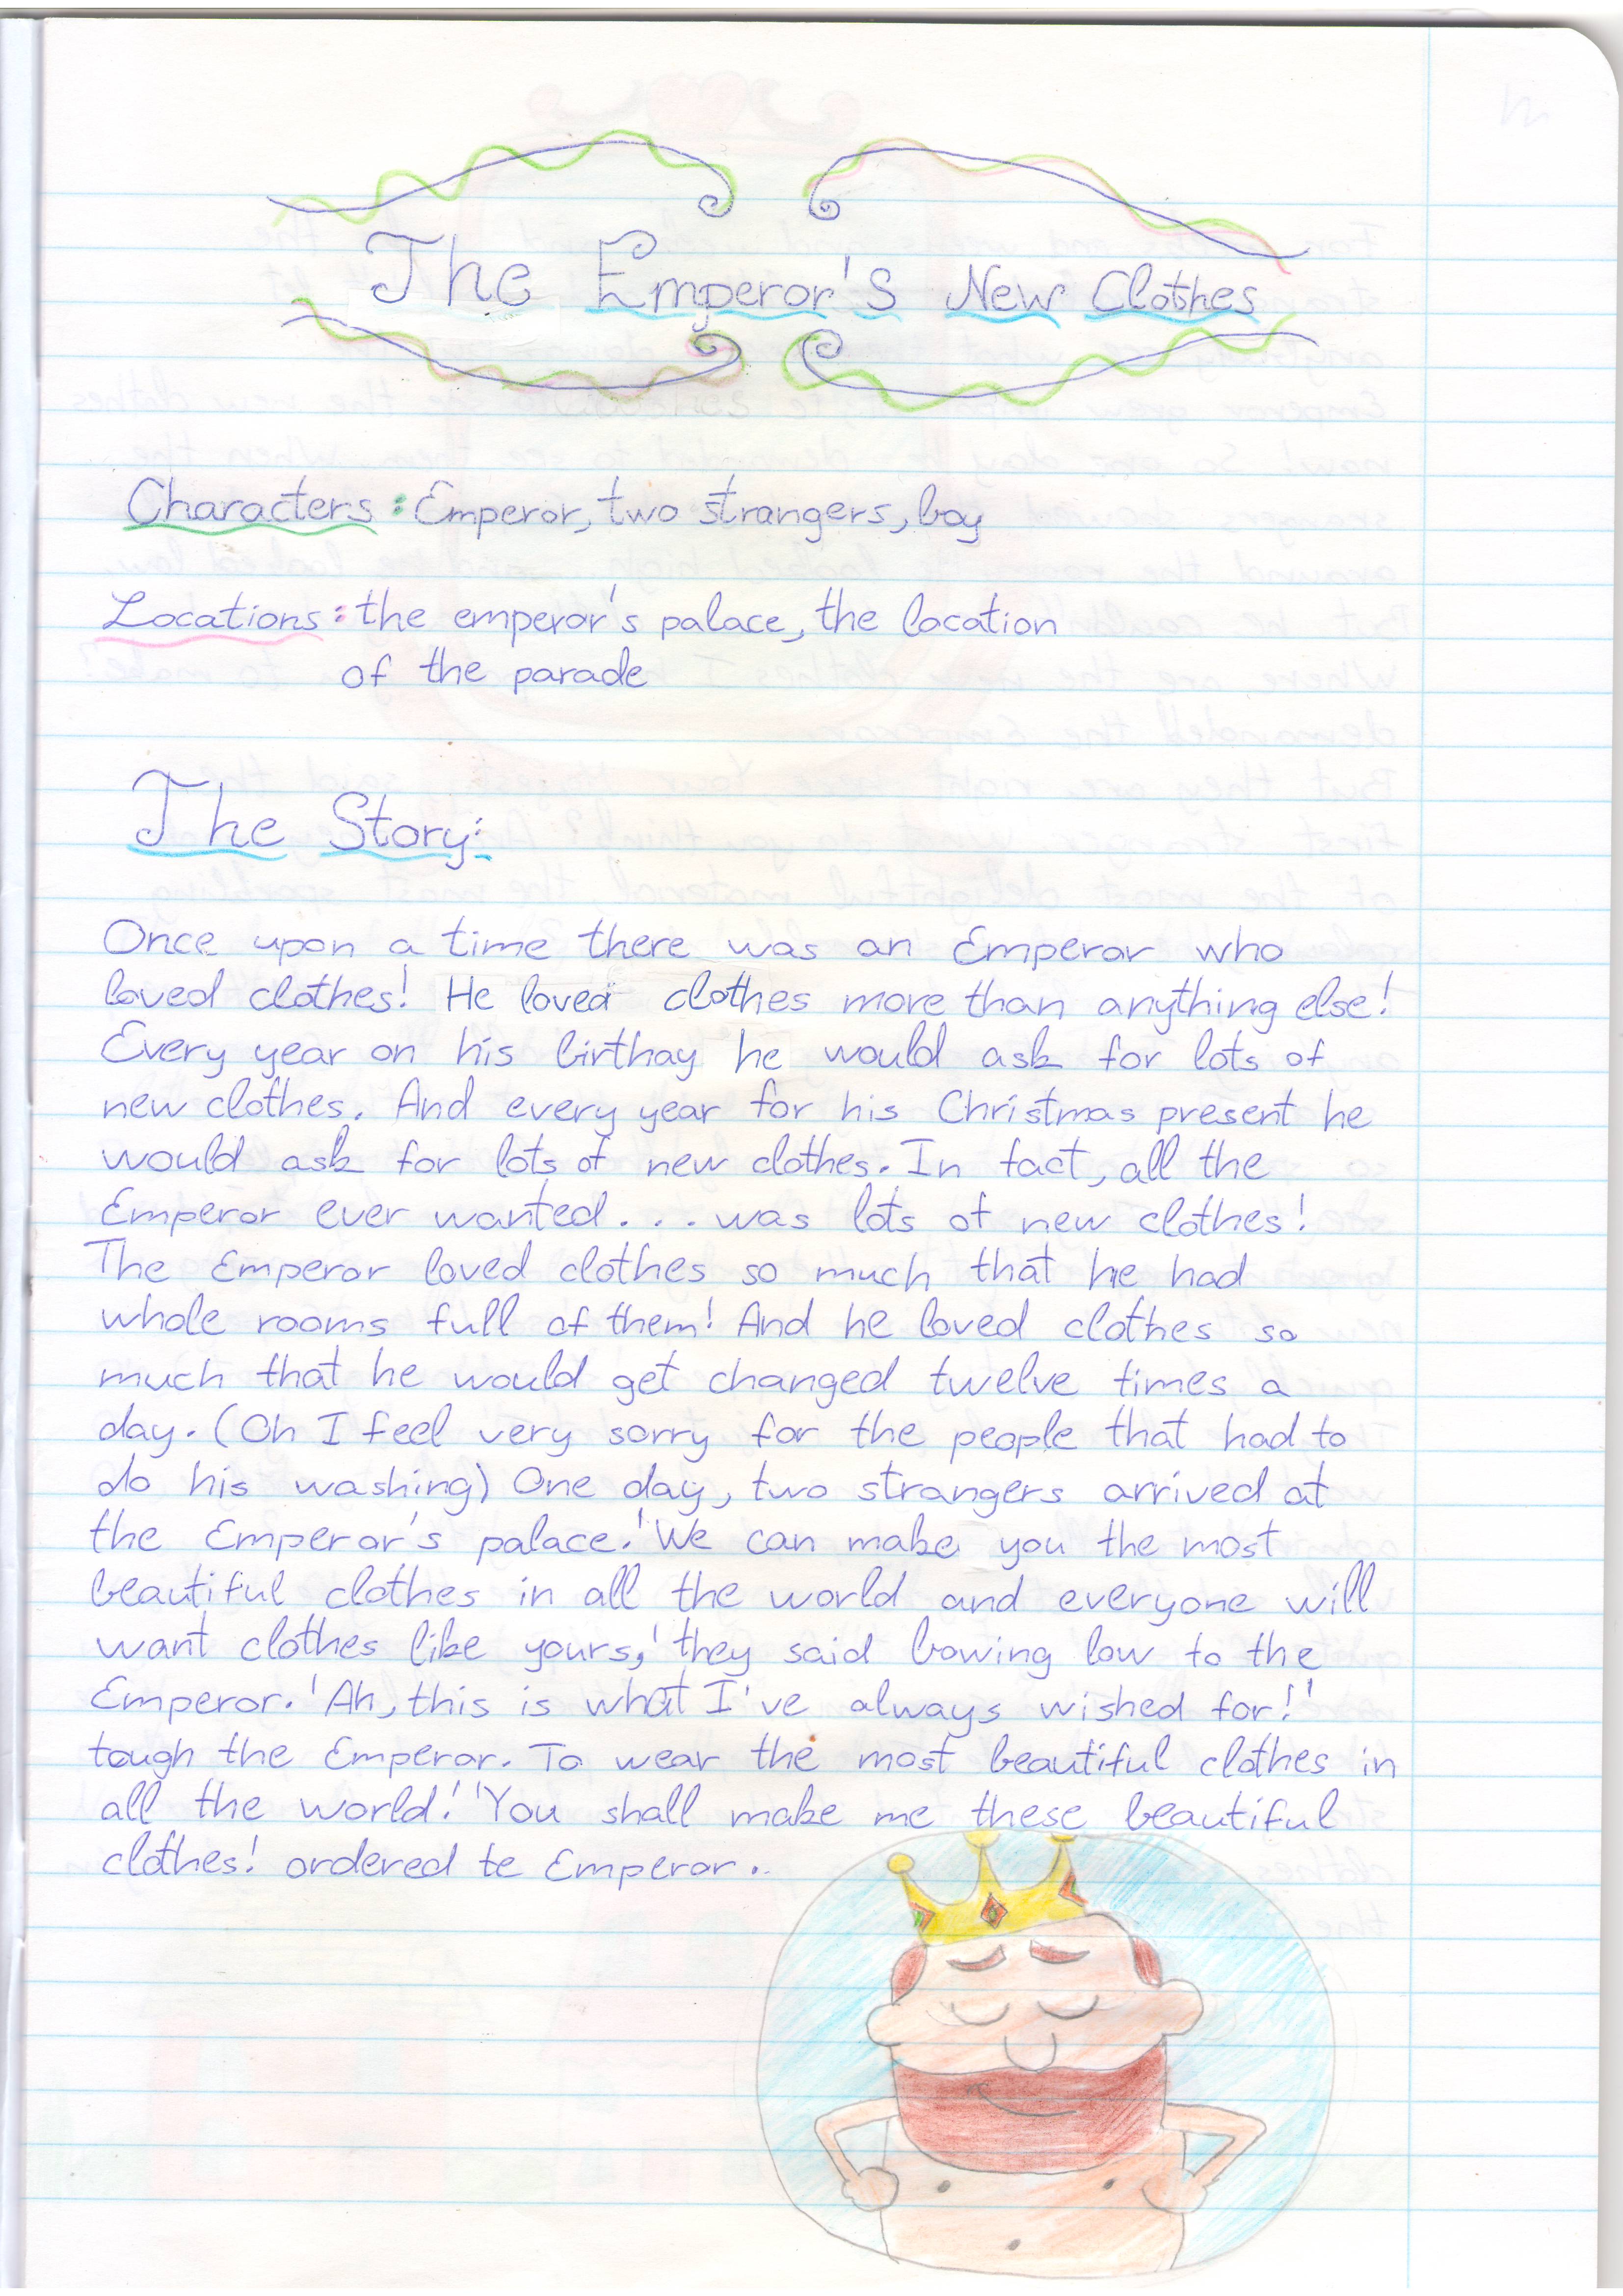 The Emperor's New Clothes
Characters: Emperor, two strangers, boy
Locations: the emperor's palace, the location
of the parade
The Story:
Once upon a time there was an Emperor who
loved clothes! He loved clothes more than anything else!
Every year on his birthay he would ask for lots of
new clothes. And every year for his Christmas present he
would ask for lots of new clothes. In fact, all the
Emperor ever wanted... was lots of new clothes!
The Emperor loved clothes so much that he had
whole rooms full of them! And he loved clothes so
much that he would get changed twelve times a
day. (Oh I feel very sorry for the people that had to
do his washing) One day, two strangers arrived at
the Emperor's palace. 'We can make you the most
beautiful clothes in all the world and everyone will
want clothes like yours,' they said bowing low to the
Emperor. 'Ah, this is what I've always wished for!'
tough the Emperor. To wear the most beautiful clothes in
all the world!' 'You shall make me these beautiful
clothes! ordered te Emperor..